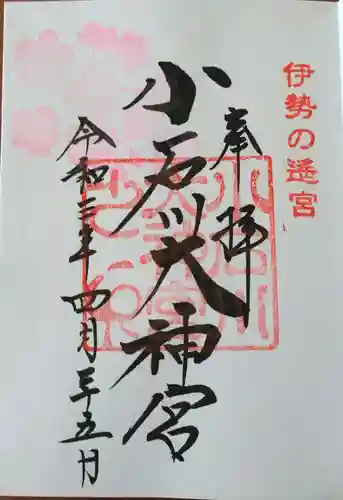 伊勢の遥宮
奉拝
小石川大神宮
令和三年四月二十五日